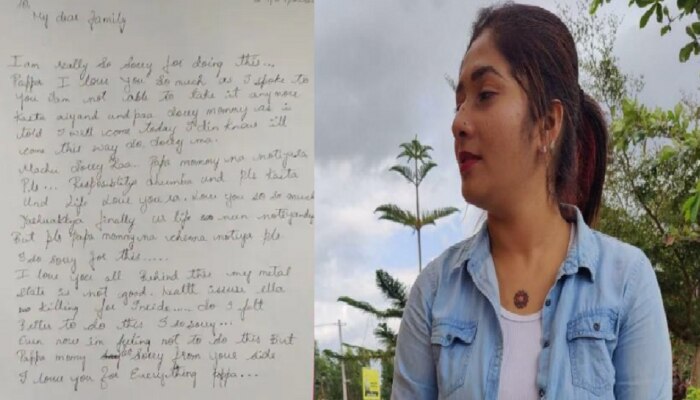 My dear Family
I am really so sorry for doing this...
Pappa I love you so much as I spoke to
you I am not able to take it anymore
Kasta and paa sorry mommy as i
told I well come today I din know i'll
come this way so sorry ma.
Sorry Papa mommy na
Pls... and pls Kasta
Und life Love you ra. Love you so so much
finally life
But pls Papa mommy na pls
I so sorry for this.....
I love you all Behind this my metal
state is not good. health issues ella
Killing for Inside..... So I felt
Better to do this I so sorry...
Even now im feeling not to do this But
Pappa momy Sorry from your side
I love you for Everything Pappa...